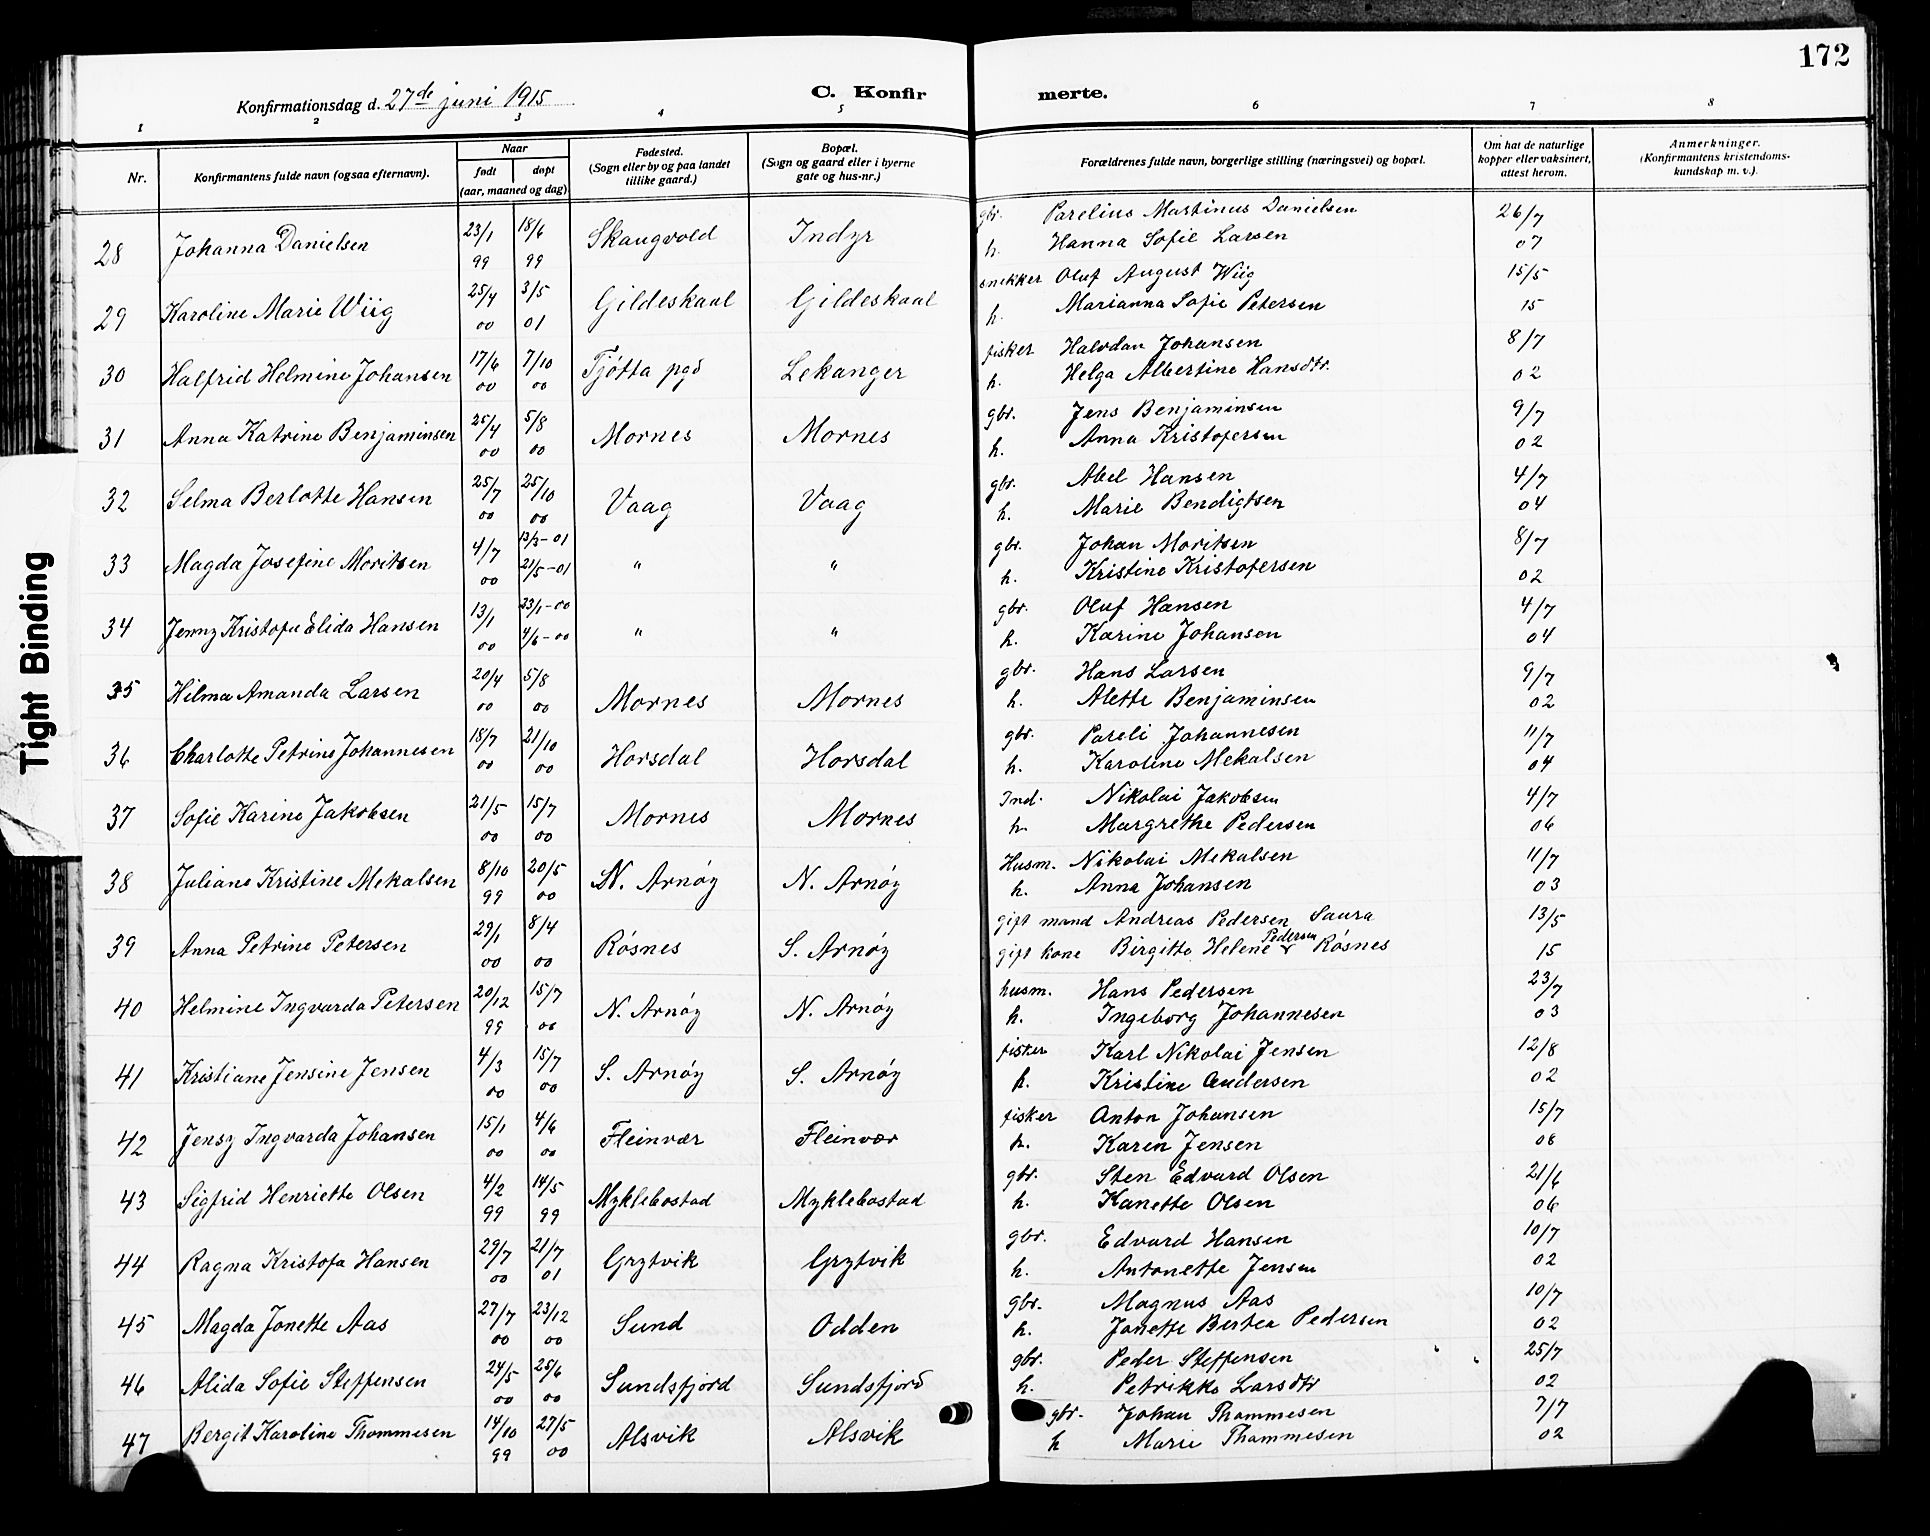 172
Konfirmationsdag d. 27de juni 1915
C. Konfirmerte.
1 2 3 4 5 6 7 8
Nr. Konfirmantens fulde navn (ogsaa efternavn). Naar født døpt (aar, maaned og dag) Fødested. (Sogn eller by og paa landet tillike gaard.) Bopæl. (Sogn og gaard eller i byerne gate og hus-nr.) Forældrenes fulde navn, borgerlige stilling (næringsvei) og bopæl. Om hat de naturlige kopper eller vaksinert, attest herom. Anmerkninger. (Konfirmantens kristendomskundskap m. v.).
28 Johanna Danielsen 23/1 99 18/6 99 Skaugvold Indyr gbr. Parelius Martinus Danielsen 26/7
h. Hanna Sofie Larsen 07
29 Karoline Marie Wiig 25/4 00 3/5 01 Gildeskaal Gildeskaal snekker Oluf August Wiig 15/5
h. Marianna Sofie Petersen 15
30 Halfrid Helmine Johansen 17/6 00 7/10 00 Tjøtta pgd Lekanger fisker Halvdan Johansen 8/7
h. Helga Albertine Hansdtr. 02
31 Anna Katrine Benjaminsen 25/4 00 5/8 00 Mornes Mornes gbr. Jens Benjaminsen 9/7
h. Anna Kristofersen 02
32 Selma Berlotte Hansen 25/7 00 25/10 00 Vaag Vaag gbr. Abel Hansen 4/7
h. Marie Bendigtsen 04
33 Magda Josefine Moritsen 4/7 00 13/3-01 21/5-01 " " gbr. Johan Moritsen 8/7
h. Kristine Kristofersen 02
34 Jenny Kristofa Elida Hansen 13/1 00 23/1-00 4/6-00 " " gbr. Oluf Hansen 4/7
h. Karine Johansen 04
35 Hilma Amanda Larsen 20/4 00 5/8 00 Mornes Mornes gbr. Hans Larsen 9/7
h. Alette Benjaminsen 02
36 Charlotte Petrine Johannesen 18/7 00 21/10 00 Horsdal Horsdal gbr. Pareli Johannesen 11/7
h. Karoline Mekalsen 04
37 Sofie Karine Jakobsen 21/5 00 15/7 00 Mornes Mornes Ind. Nikolai Jakobsen 4/7
h. Margrethe Pedersen 06
38 Juliane Kristine Mekalsen 8/10 99 20/5 00 N. Arnøy N. Arnøy Husm. Nikolai Mekalsen 11/7
h. Anna Johansen 03
39 Anna Petrine Petersen 29/1 00 8/4 00 Røsnes S. Arnøy gift mand Andreas Pedersen Saura 13/5
gift kone Birgitte Helene Pedersen Røsnes 15
40 Helmine Ingvarda Petersen 20/12 99 15/7 00 N. Arnøy N. Arnøy husm. Hans Pedersen 23/7
h. Ingeborg Johannesen 03
41 Kristiane Jensine Jensen 4/3 00 15/7 00 S. Arnøy S. Arnøy fisker Karl Nikolai Jensen 12/8
h. Kristine Andersen 02
42 Jensy Ingvarda Johansen 15/1 00 4/6 00 Fleinvær Fleinvær fisker Anton Johansen 15/7
h. Karen Jensen 08
43 Sigfrid Henriette Olsen 4/2 99 14/5 99 Myklebostad Myklebostad gbr. Sten Edvard Olsen 21/6
h. Kanette Olsen 06
44 Ragna Kristofa Hansen 29/7 00 21/7 01 Grytvik Grytvik gbr. Edvard Hansen 10/7
h. Antonette Jensen 02
45 Magda Jonette Aas 27/7 00 23/12 00 Sund Odden gbr. Magnus Aas 10/7
h. Jonette Bertea Pedersen 02
46 Alida Sofie Steffensen 24/5 00 25/6 00 Sundsfjord Sundsfjord gbr. Peder Steffensen 25/7
h. Petrikke Larsdtr 02
47 Bergit Karoline Thommesen 14/10 99 27/5 00 Alsvik Alsvik gbr. Johan Thommesen 7/7
h Marie Thommesen 02
Tight Binding